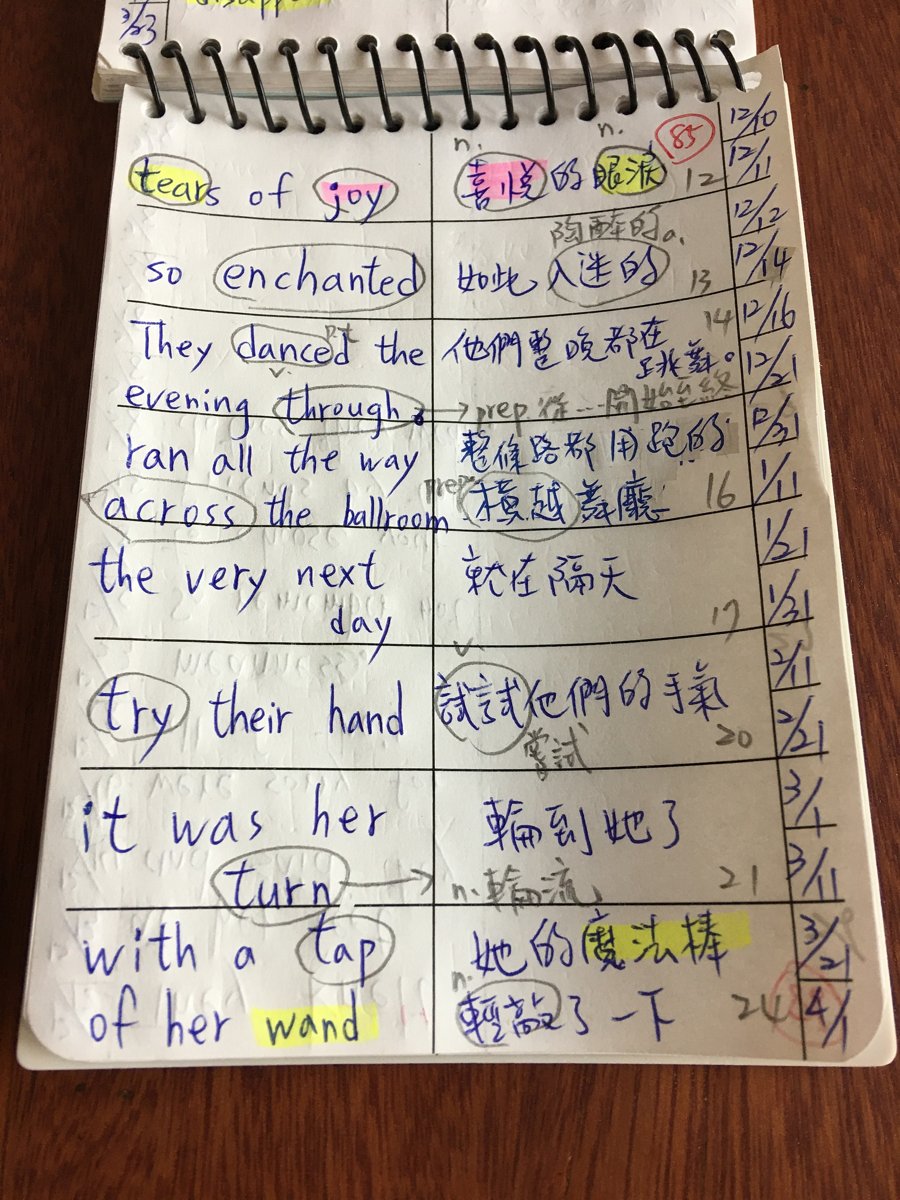 3/23
n.
n.
85
tears of joy
喜悅的眼淚
12
陶醉的a.
so enchanted
如此入迷的
13
They danced the
p.t
v.
evening through.
他們整晚都在
跳舞。
14
→prep 從…開始至終
ran all the way
across the ballroom
整條路都用跑的
prep.
橫越舞廳
16
the very next
day
就在隔天
17
try their hand
v.
試試他們的手氣
嘗試
20
it was her
turn
輪到她了
n.輪流
21
with a tap
of her wand
她的魔法棒
n.
輕敲了一下
24
12/10
12/11
12/12
12/14
12/16
12/21
12/31
1/11
1/21
1/31
2/11
2/21
3/1
3/11
3/21
4/1